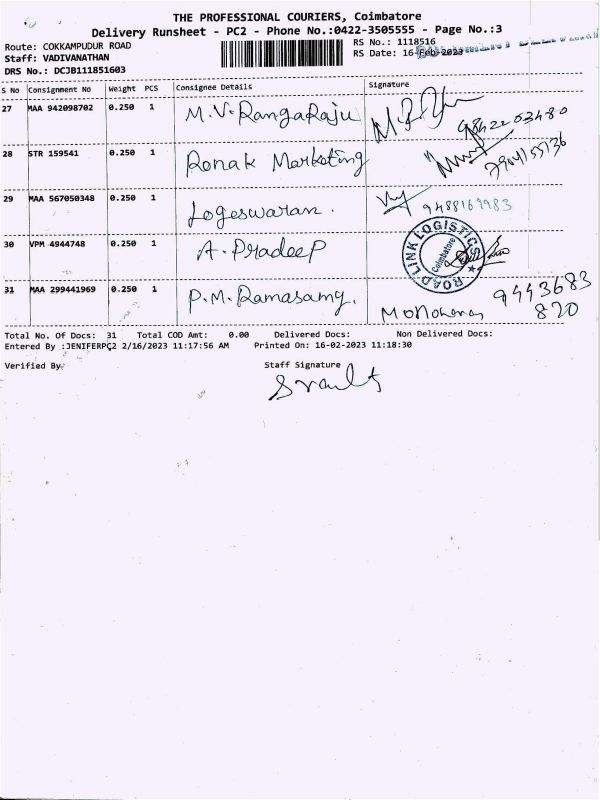 THE PROFESSIONAL COURIERS, Coimbatore
Delivery Runsheet - PC2 - Phone No.:0422-3505555 - Page No.:3
Route: COKKAMPUDUR ROAD
RS No.: 1118516
Staff: VADIVANATHAN
RS Date: 16-Feb-2023
DRS No.: DCJB111851603
S No Consignment No Weight PCS Consignee Details Signature
27 MAA 942098702 0.250 1 M.V. RangaRaju
28 STR 159541 0.250 1 Ronak Marketing 7904155136
29 MAA 567050348 0.250 1 Logeswaran. 9488169983
30 VPM 4944748 0.250 1 A. Pradeep ROAD LINK LOGISTICS Coimbatore
31 MAA 299441969 0.250 1 P.M. Ramasamy. 9443683
820
Total No. Of Docs: 31 Total COD Amt: 0.00 Delivered Docs: Non Delivered Docs:
Entered By :JENIFERPC2 2/16/2023 11:17:56 AM Printed On: 16-02-2023 11:18:30
Verified By Staff Signature